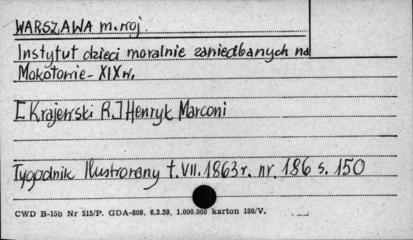 WARSZAWA m. woj.
Instytut dzieci moralnie zaniedbanych na
Mokotowie - XIX w.
[Krajewski R.] Henryk Marconi
Tygodnik Ilustrowany t. VII. 1863 r. nr. 186 s. 150
CWD B-15b Nr 515/P. GDA-809. 6.3.59. 1.000.000 karton 180/V.